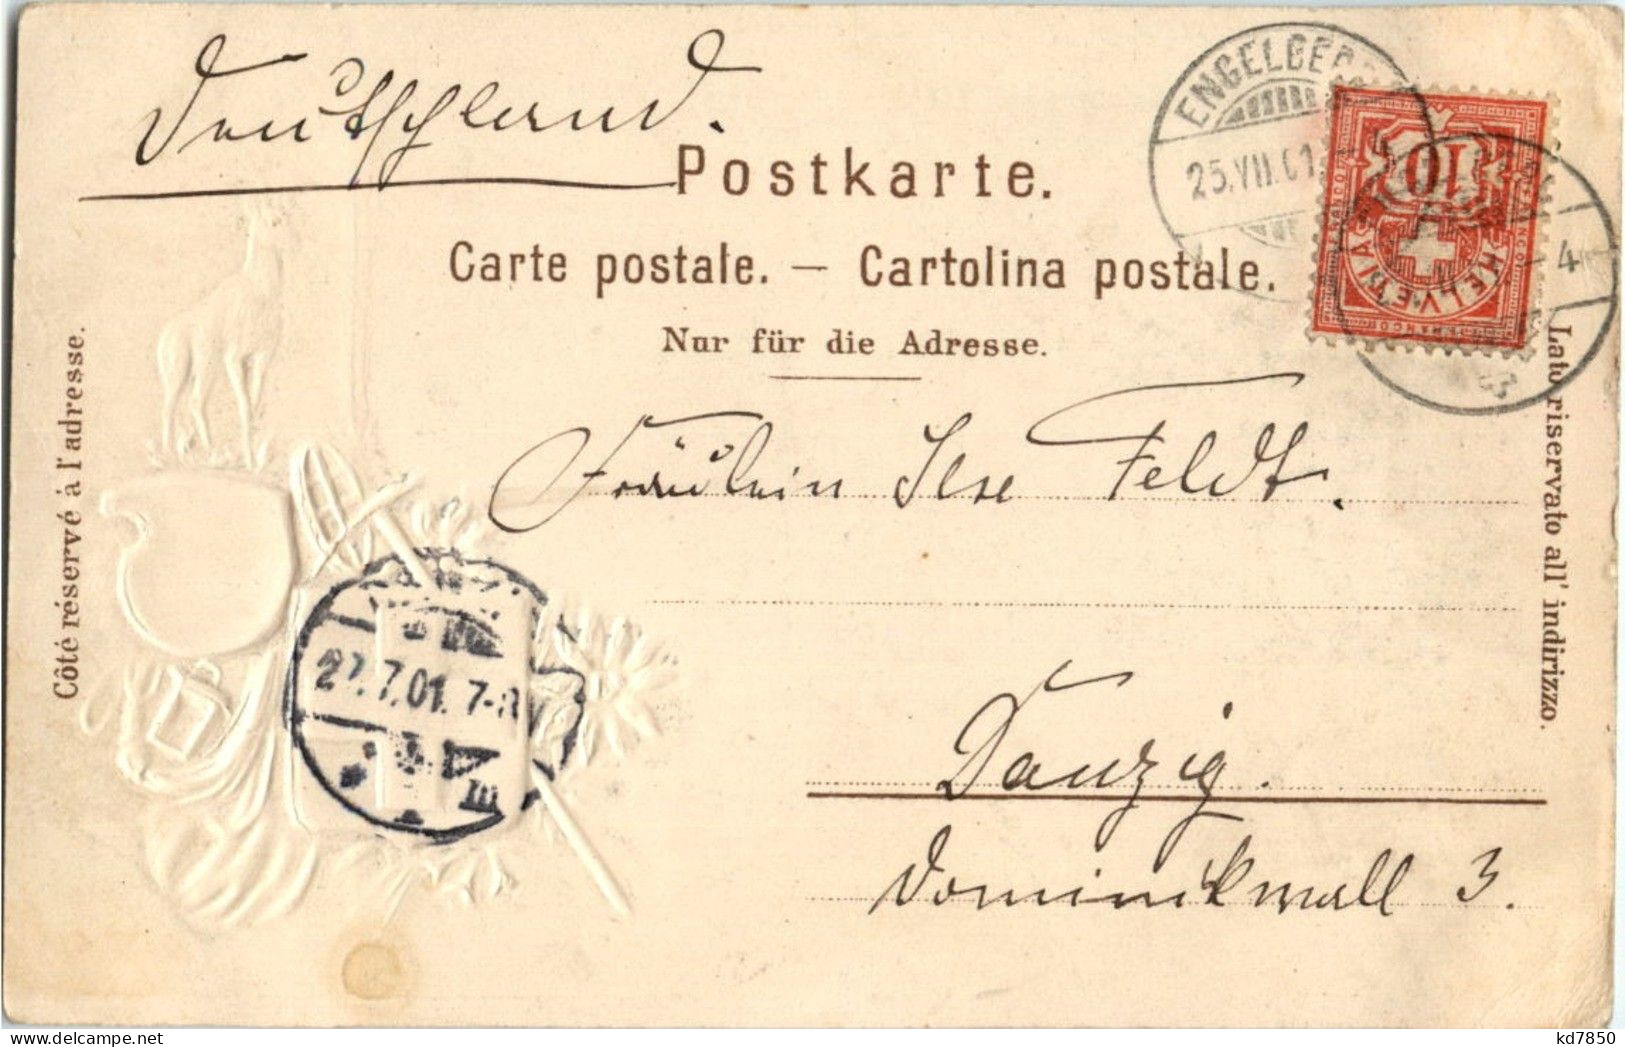 Deutschland.
ENGELBERG
25.VII.01.
10
FRANCO
HELVETIA
4
Postkarte.
Carte postale. — Cartolina postale.
Nur für die Adresse.
Côté réservé à l'adresse.
Lato riservato all' indirizzo.
Fräulein Ilse Feldt.
27.7.01. 7-8 V
Danzig.
Dominikwall 3.
kd7850